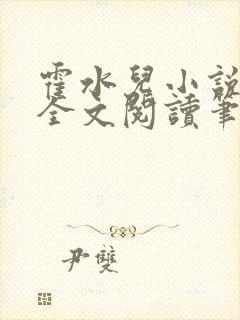 霍水兒小說
全文閱讀筆
尹雙